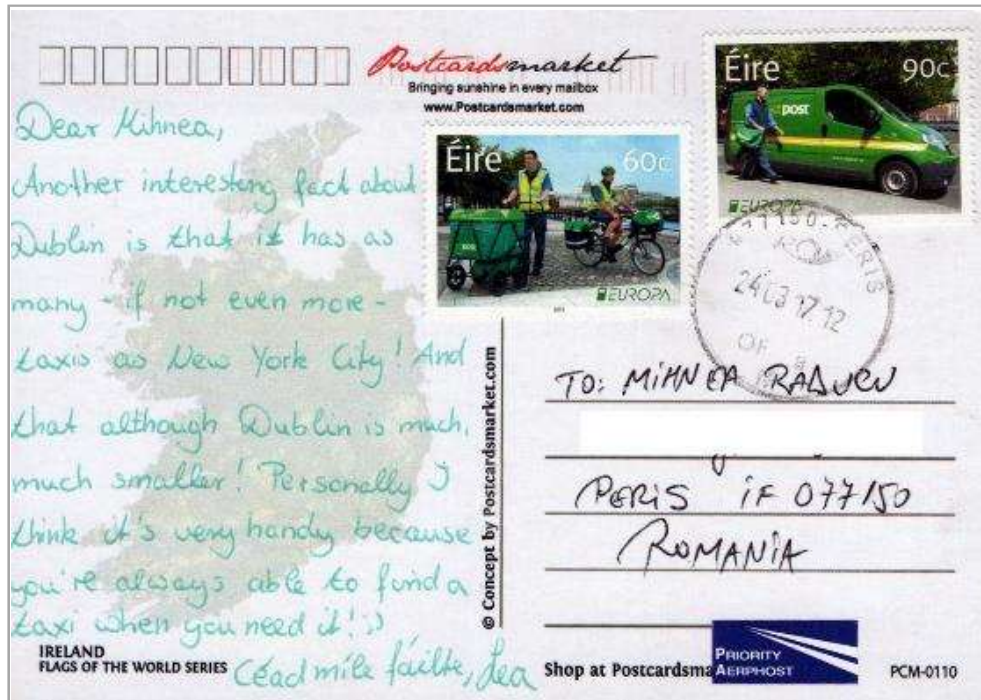 Postcardsmarket
Bringing sunshine in every mailbox
www.Postcardsmarket.com
Éire 90c
post
EUROPA
Éire 60c
EUROPA
077150 PERIS
ROM
24 03 17.12
OF
Dear Mihnea,
Another interesting fact about
Dublin is that it has as
many - if not even more -
taxis as New York City! And
that although Dublin is much,
much smaller! Personally I
think it's very handy because
you're always able to find a
taxi when you need it! :)
Céad míle fáilte, Lea
IRELAND
FLAGS OF THE WORLD SERIES
© Concept by Postcardsmarket.com
TO: MIHNEA RADUCU
PERIS IF 077150
ROMANIA
Shop at Postcardsma
PRIORITY
AERPHOST
PCM-0110